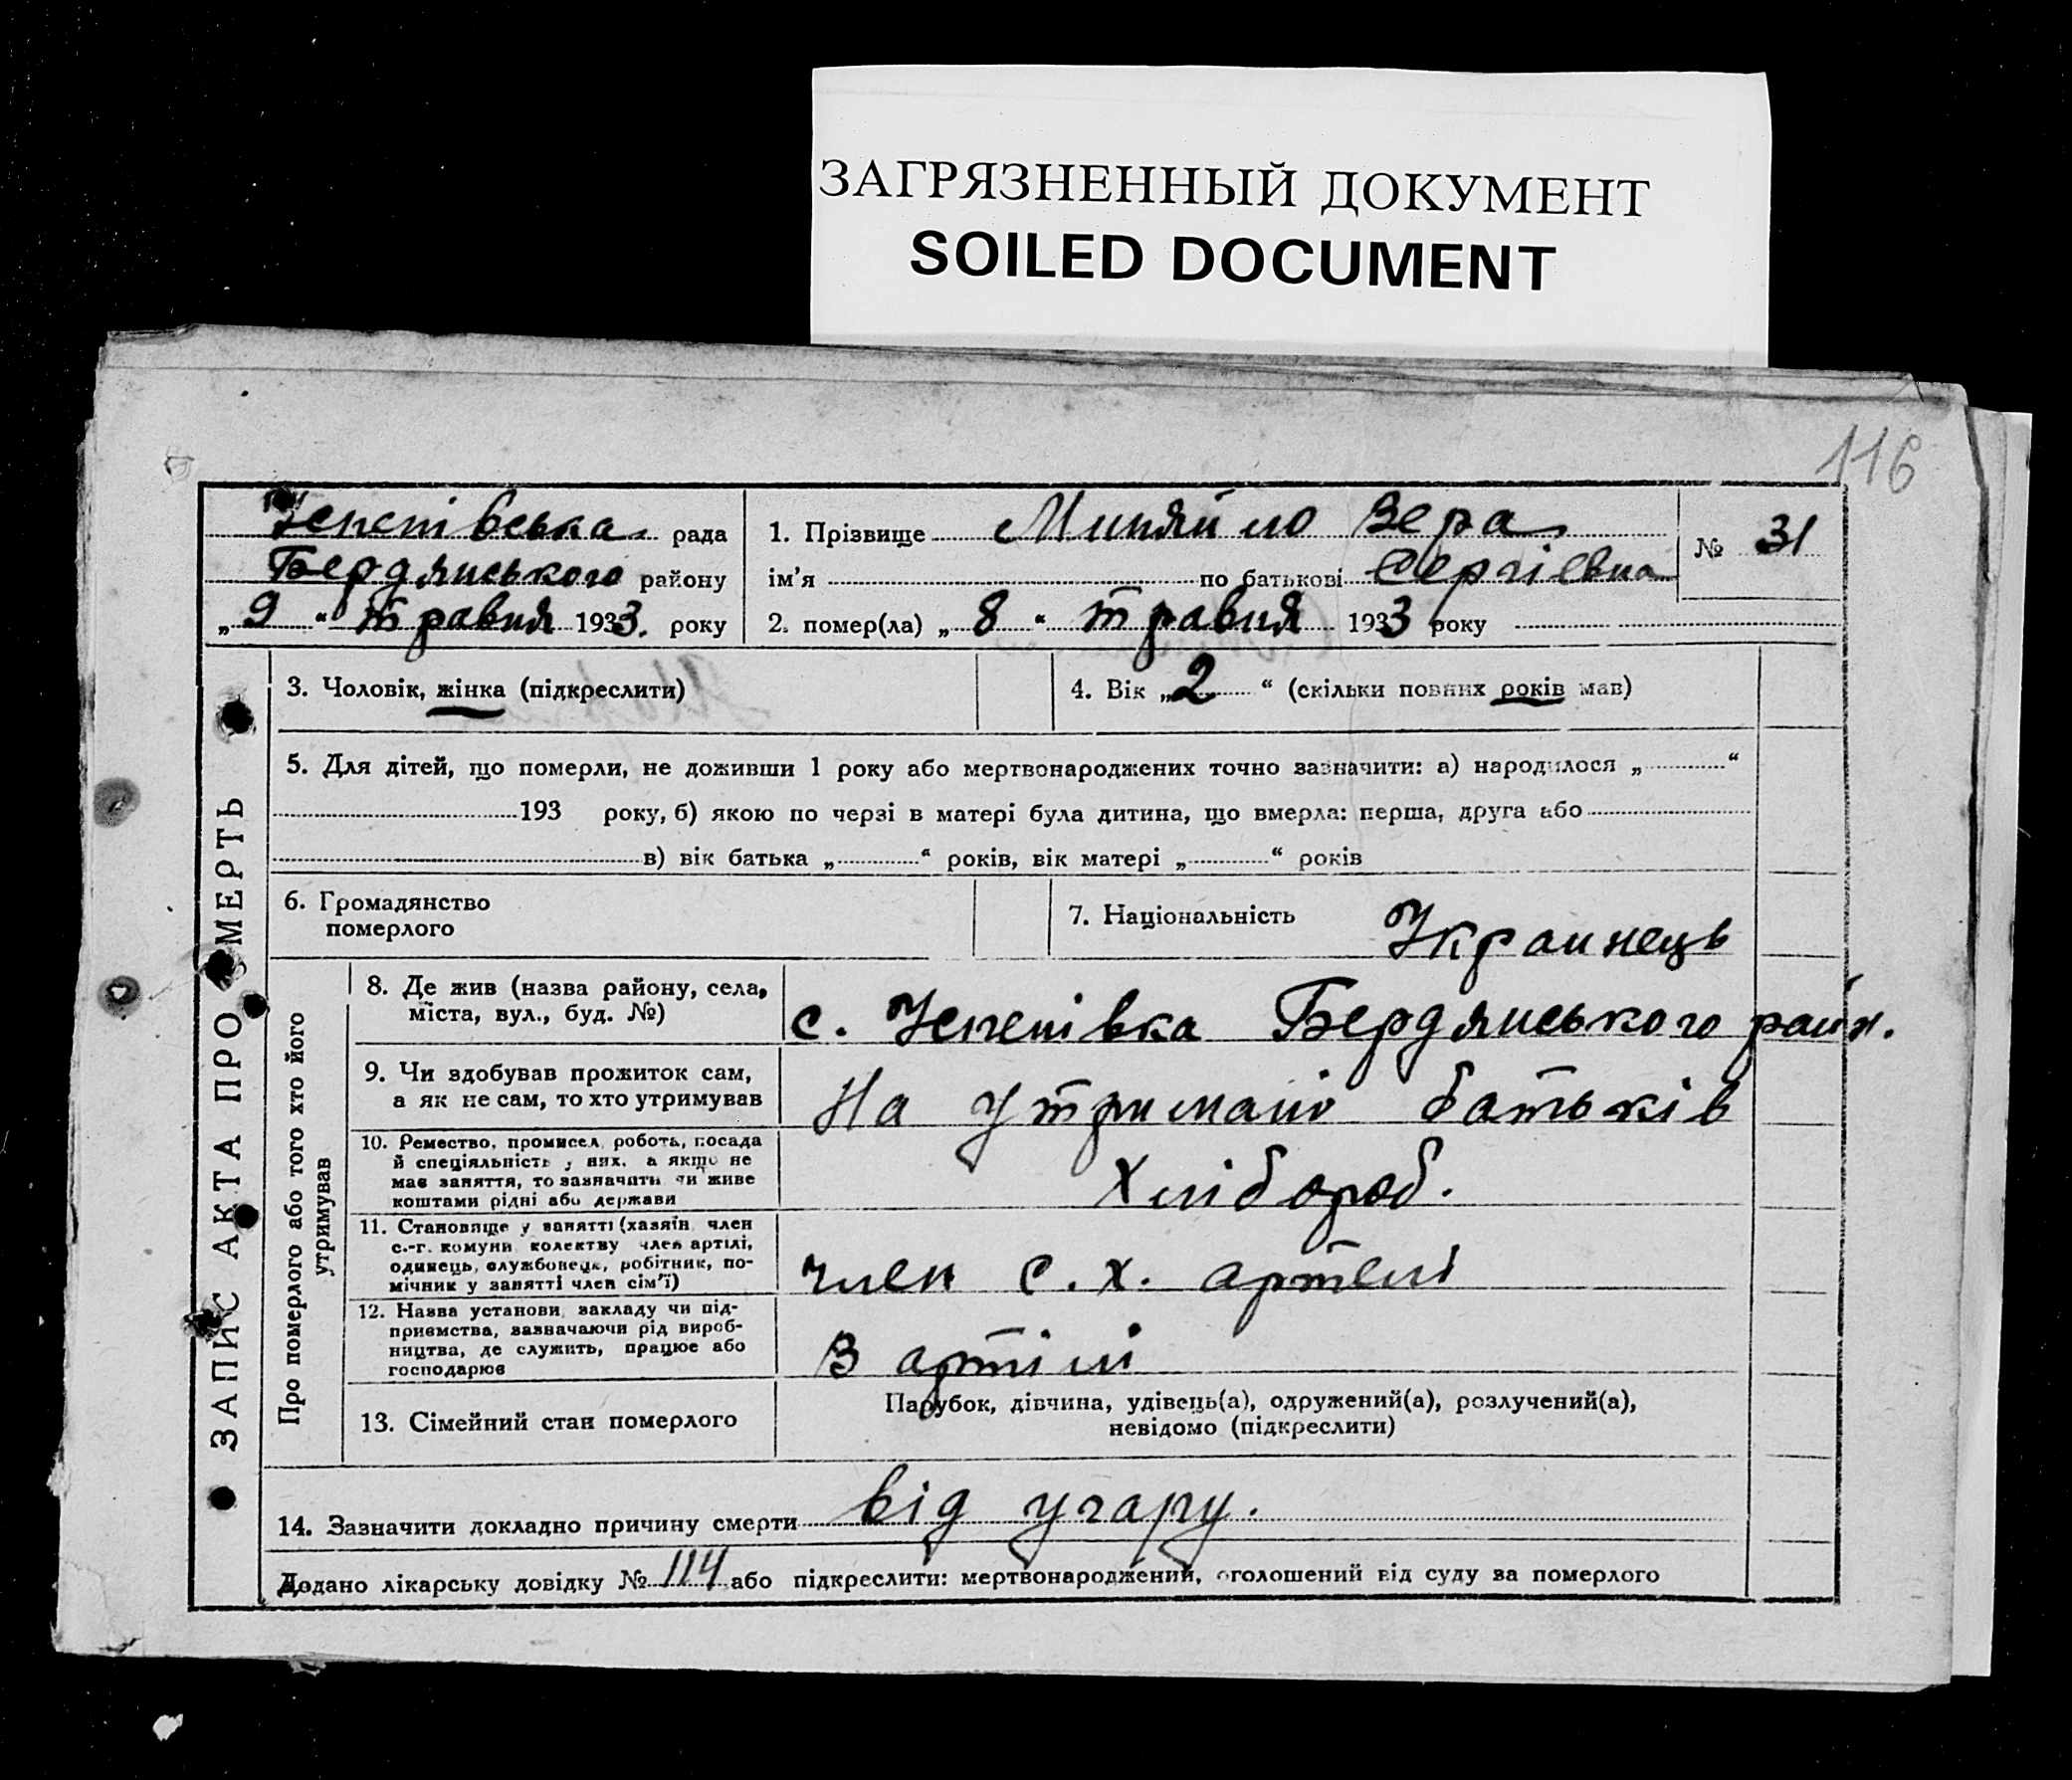 ЗАГРЯЗНЕННЫЙ ДОКУМЕНТ
SOILED DOCUMENT
116
Успенівська рада
Бердянського району
„ 9 “ травня 1933. року
1. Прізвище Миняйло Вера
ім’я по батькові Сергіевна
2. помер(ла) „ 8 “ травня 1933 року
№ 31
ЗАПИС АКТА ПРО СМЕРТЬ
3. Чоловік, жінка (підкреслити)
4. Вік „ 2 “ (скільки повних років мав)
5. Для дітей, що померли, не доживши 1 року або мертвонароджених точно зазначити: а) народилося „ “
193 року, б) якою по черзі в матері була дитина, що вмерла: перша, друга або
в) вік батька „ “ років, вік матері „ “ років
6. Громадянство
померлого
7. Національність Украинець
Про померлого або того хто його
утримував
8. Де жив (назва району, села,
міста, вул., буд. №)
с. Успенівка Бердянського район.
9. Чи здобував прожиток сам,
а як не сам, то хто утримував
На утримані батьків
10. Ремество, промисел, робота, посада
й спеціяльність у них, а якщо не
має заняття, то зазначити чи живе
коштами рідні або держави
Хлібороб.
11. Становище у занятті (хазяїн, член
с.-г. комуни, колективу член артілі,
одинець, службовець, робітник, по-
мічник у занятті член сім’ї)
член с. х. артелі
12. Назва установи, закладу чи під-
приємства, зазначаючи рід вироб-
ництва, де служить, працює або
господарює
В артілі
13. Сімейний стан померлого
Парубок, дівчина, удівець(а), одружений(а), розлучений(а),
невідомо (підкреслити)
14. Зазначити докладно причину смерти від угару.
Додано лікарську довідку № 114 або підкреслити: мертвонароджений, оголошений від суду за померлого